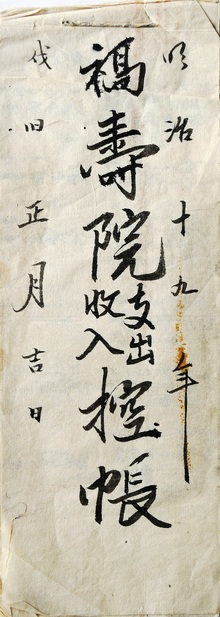 明治十九年
福壽院
支出
收入
控帳
戌旧正月吉日